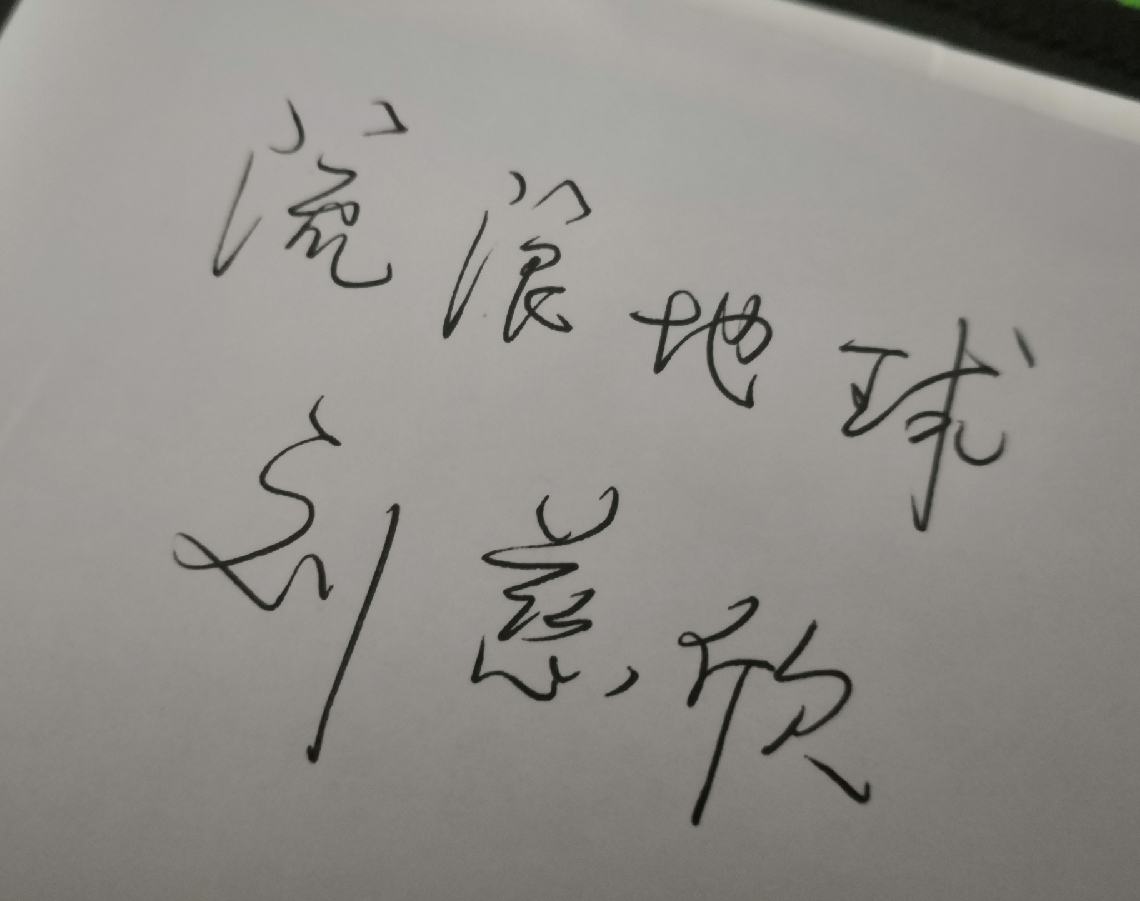 流浪地球
刘慈欣